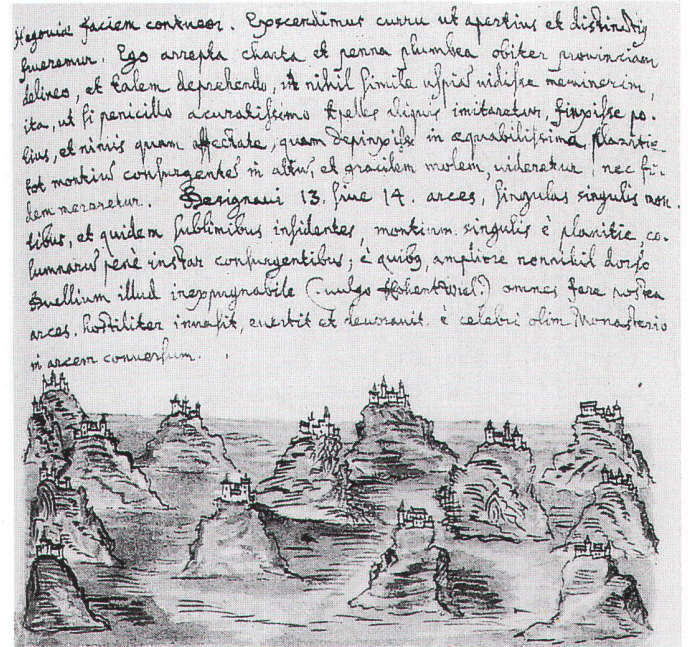 Hegoviæ faciem contueor. Exscendimus curru ut apertius et distinctius
frueremur. Ego arrepta charta et penna plumbea obiter provinciam
delineo, et talem deprehendo, ut nihil simile uspiã vidisse meminerim,
ita, ut si penicillo acuratissimo Apelles digus imitaretur, finxisse po-
tius, et nimis quam affectate, quam depinxisse in æquabilissima planitie
tot montiũ consurgentes in altũ, et gracilem molem, videretur, nec fi-
dem mereretur. Designavi 13. sive 14. arces, singulas singulis mon-
tibus, et quidem sublimibus insidentes, montium singulis è planitie, co-
lumnarũ penè instar consurgentibus; è quibq, ampliore nonnihil dorso
Duellium illud inexpugnabile (: vulgo Hohentwiel:) omnes fere nostra
arces. hostiliter invasit, evertit et devoravit. è celebri olim Monasterio
in arcem conversum.